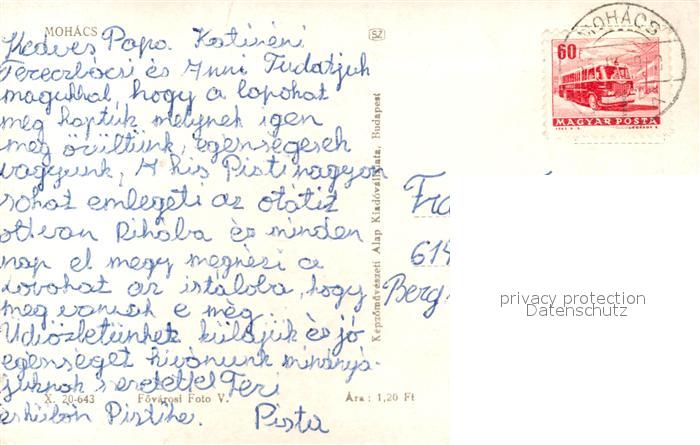 MOHÁCS
SZ
Kedves Papa. Katinéni
Fereczbácsi és Anni Tudatjuk
magukkal, hogy a lapokat
meg kaptuk melynek igen
meg örültünk, egenségesek
vagyunk, A kis Pisti nagyon
sokat emlegeti az otatiz
ottvan Rihába és minden
nap el megy megnézi a
lovokat az istáloba, hogy
meg vannak e még.
Üdiözletünket küldjük és jó
egenséget kivánunk mindnyá-
juknak szeretettel Feri
és kübön Pistike. Pista
X. 20-643 Fővárosi Foto V. Ára : 1,20 Ft
Képzőművészeti Alap Kiadóvállalata, Budapest
MOHÁCS
60f
MAGYAR POSTA
Fra
614
Berg
privacy protection
Datenschutz